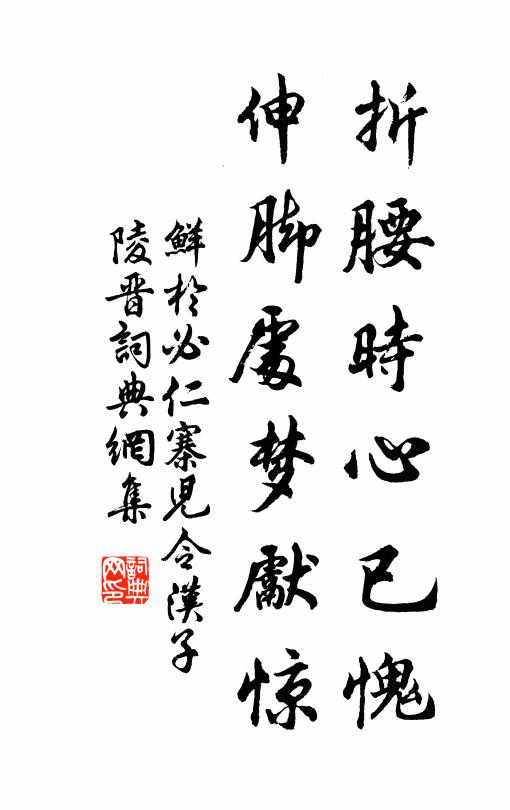 折腰時心已愧
伸脚處梦獻惊
鮮於必仁寨兒令漢子
陵晋詞典網集
詞典
网印